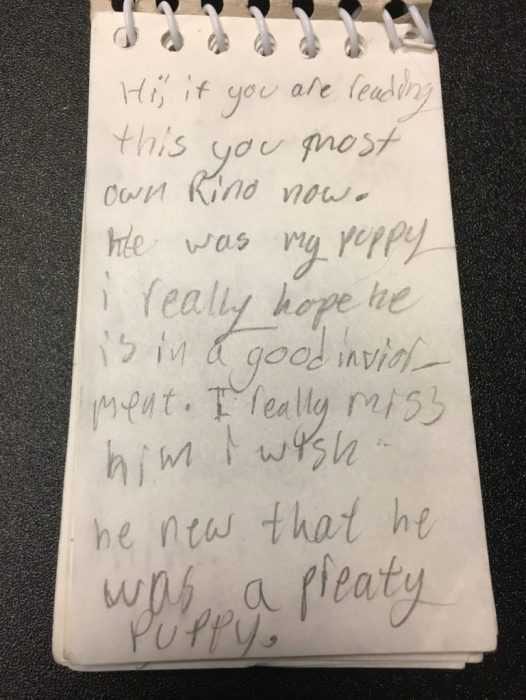 Hi, if you are reading
this you most
own Rino now.
He was my puppy
i really hope he
is in a good invior-
ment. I really miss
him i wish
he new that he
was a pieaty
puppy.